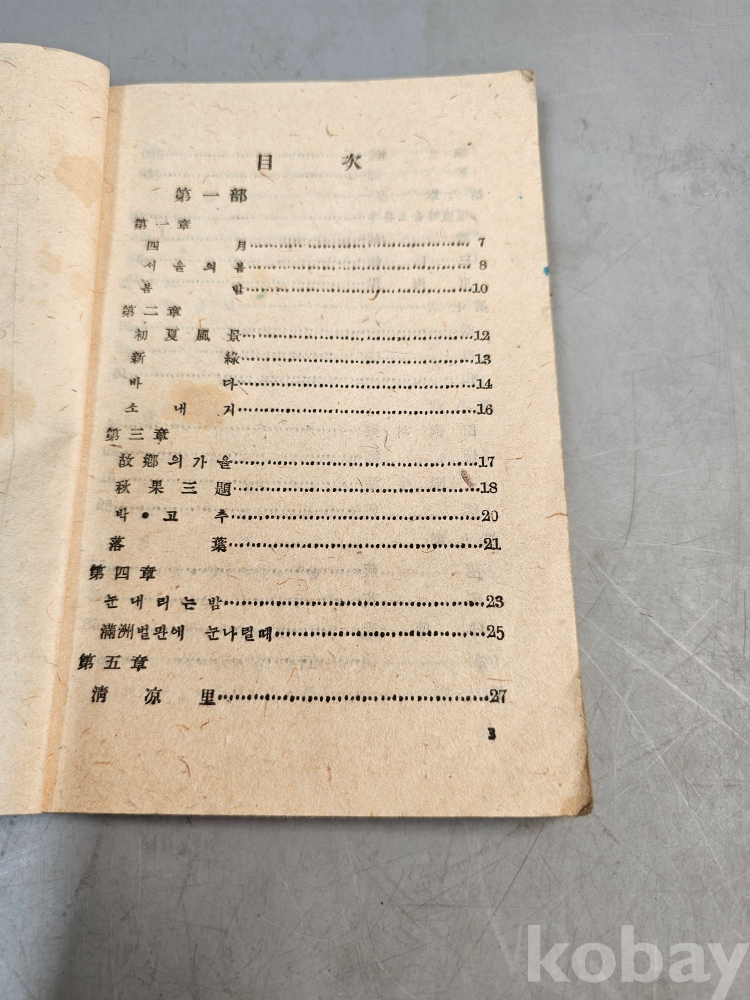 目次
第一部
第一章
四月……7
서울의봄……8
봄밤……10
第二章
初夏風景……12
新綠……13
바다……14
소내기……16
第三章
故鄕의가을……17
秋果三題……18
박•고추……20
落葉……21
第四章
눈내리는밤……23
滿洲벌판에 눈나릴때……25
第五章
淸凉里……27
3
kobay